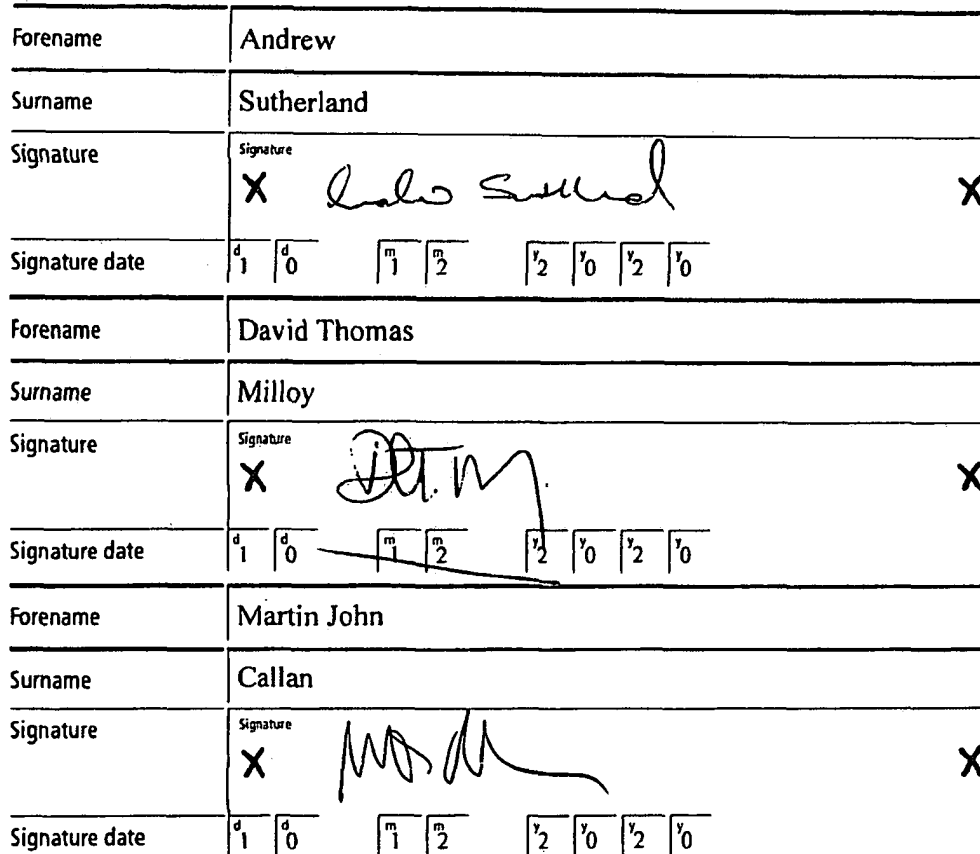 Forename Andrew
Surname Sutherland
Signature Signature
X X
Signature date d1 d0 m1 m2 y2 y0 y2 y0
Forename David Thomas
Surname Milloy
Signature Signature
X X
Signature date d1 d0 m1 m2 y2 y0 y2 y0
Forename Martin John
Surname Callan
Signature Signature
X X
Signature date d1 d0 m1 m2 y2 y0 y2 y0